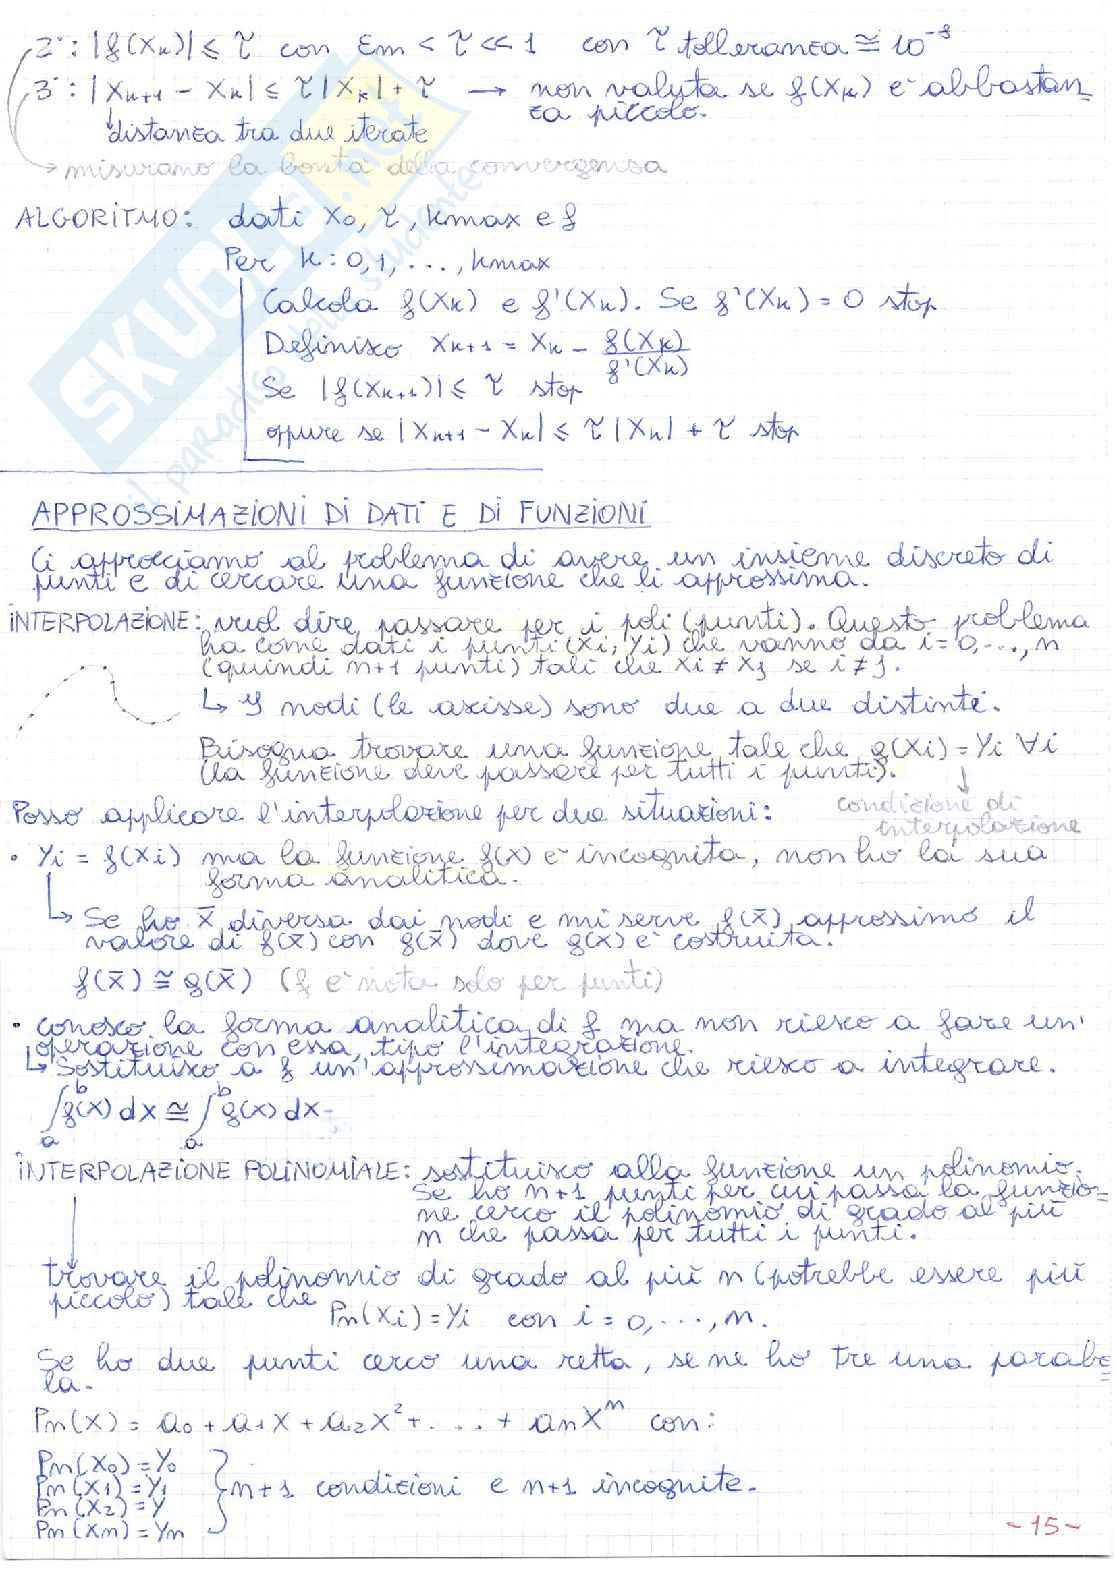 2°: |f(Xk)| ⩽ τ con Em < τ << 1 con τ tolleranza ≅ 10⁻⁸
3°: |Xk+1 - Xk| ⩽ τ|Xk| + τ → non valuta se f(Xk) è abbastan=
za piccolo.
↓ distanza tra due iterate
→ misurano la bontà della convergenza
ALGORITMO: dati X₀, τ, kmax e f
Per k: 0,1,...,kmax
Calcola f(Xk) e f'(Xk). Se f'(Xk) = 0 stop
Definisco Xk+1 = Xk - f(Xk)/f'(Xk)
Se |f(Xk+1)| ⩽ τ stop
oppure se |Xk+1 - Xk| ⩽ τ|Xk| + τ stop
SKUOLA.net
il paradiso dello studente
APPROSSIMAZIONI DI DATI E DI FUNZIONI
Ci approcciamo al problema di avere un insieme discreto di
punti e di cercare una funzione che li approssima.
INTERPOLAZIONE: vuol dire passare per i poli (punti). Questo problema
ha come dati i punti (Xi, Yi) che vanno da i = 0,...,n
(quindi n+1 punti) tali che Xi ≠ Xj se i ≠ j.
↳ I nodi (le ascisse) sono due a due distinti.
Bisogna trovare una funzione tale che g(Xi) = Yi ∀i
(la funzione deve passare per tutti i punti).
↓ condizione di
interpolazione
Posso applicare l'interpolazione per due situazioni:
• Yi = f(Xi) ma la funzione f(X) è incognita, non ho la sua
forma analitica.
↳ Se ho X̄ diversa dai nodi e mi serve f(X̄) approssimo il
valore di f(X̄) con g(X̄) dove g(X) è costruita.
f(X̄) ≅ g(X̄) (f è nota solo per punti)
• conosco la forma analitica di f ma non riesco a fare un'
operazione con essa, tipo l'integrazione.
↳ Sostituisco a f un'approssimazione che riesco a integrare.
∫ₐᵇ f(X) dX ≅ ∫ₐᵇ g(X) dX
INTERPOLAZIONE POLINOMIALE: sostituisco alla funzione un polinomio.
Se ho n+1 punti per cui passa la funzio=
ne cerco il polinomio di grado al più
n che passa per tutti i punti.
trovare il polinomio di grado al più n (potrebbe essere più
piccolo) tale che
Pn(Xi) = Yi con i = 0,...,n.
Se ho due punti cerco una retta, se ne ho tre una parabo=
la.
Pn(X) = a₀ + a₁X + a₂X² + ... + anXⁿ con:
Pn(X₀) = Y₀
Pn(X₁) = Y₁
Pn(X₂) = Y
Pn(Xn) = Yn
} n+1 condizioni e n+1 incognite.
-15-